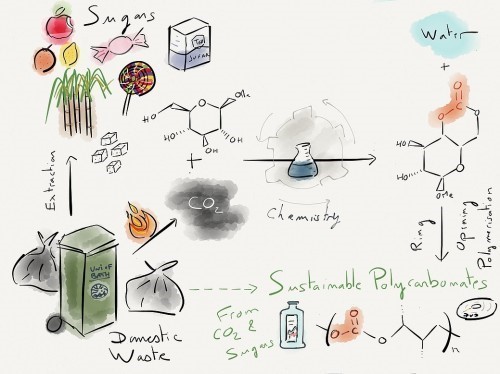 Sugars
Tea
SUGAR
Water
+
O
O
O
HO
HO
O
OMe
HO
O
OMe
HO
OH
OH
+
Extraction
CO2
Chemistry
Ring
Opining
Polymerisation
Uni of
BATH
Domestic
Waste
Sustainable Polycarbonates
From
CO2 &
Sugars
O
O
O
n